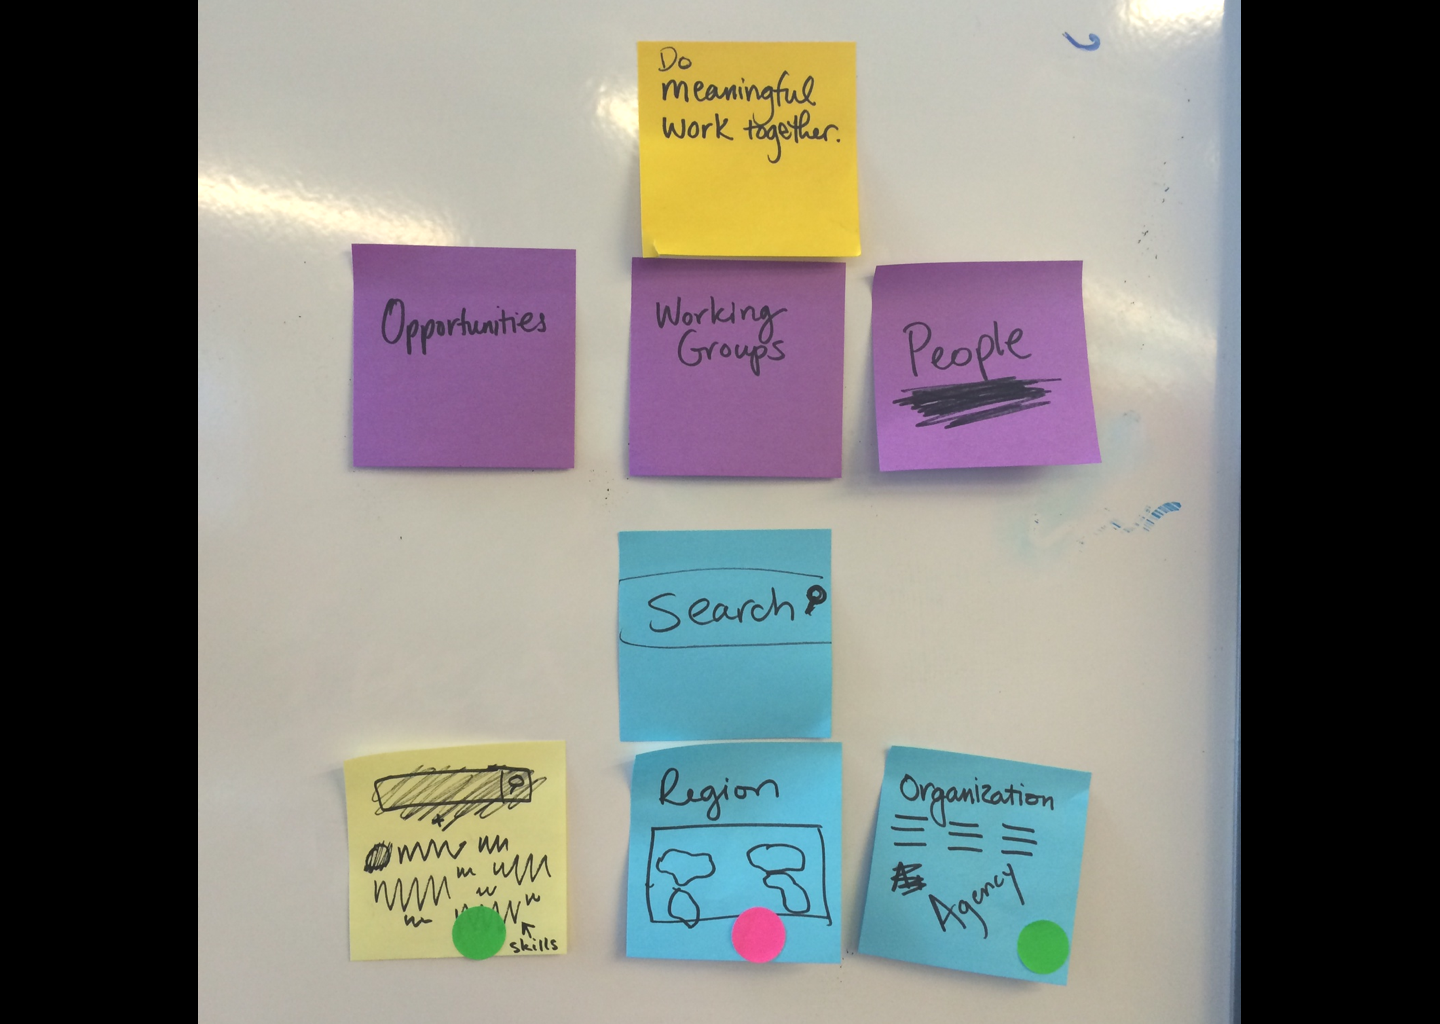 Do
meaningful
work together.
Opportunities
Working
Groups
People
Search
Region
Organization
Agency
skills